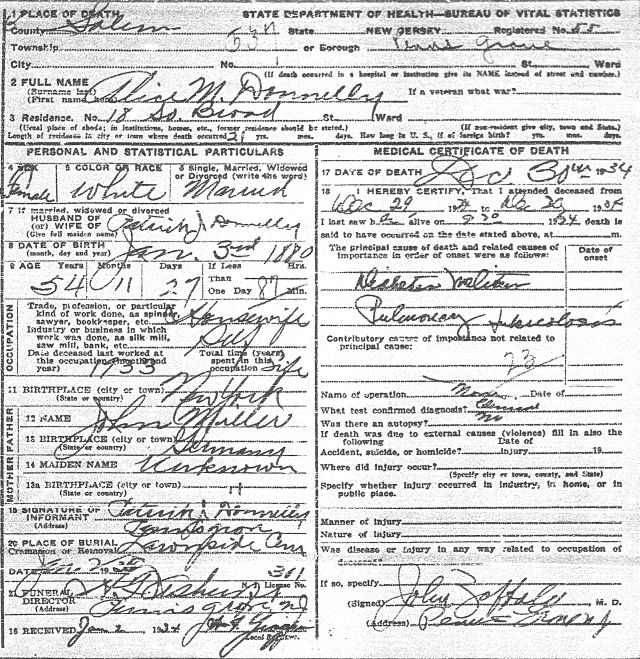 1 PLACE OF DEATH STATE DEPARTMENT OF HEALTH—BUREAU OF VITAL STATISTICS
County Salem State NEW JERSEY Registered No. 55
Township or Borough Penns Grove
City No. St. Ward
(If death occurred in a hospital or institution give its NAME instead of street and number.)
2 FULL NAME Alice M. Donnelly If a veteran what war?
(Surname last)
(First name)
3 Residence. No. 18 So. Broad St. Ward
(Usual place of abode; in institutions, homes, etc., former residence should be stated.) (If non-resident give city, town and State.)
Length of residence in city or town where death occurred yrs. mos. days. How long in U. S., if of foreign birth? yrs. mos. days.
PERSONAL AND STATISTICAL PARTICULARS
4 SEX 5 COLOR OR RACE 6 Single, Married, Widowed or Divorced (write the word)
Female White Married
7 If married, widowed or divorced
HUSBAND OF
(or) WIFE OF Patrick J. Donnelly
(Give full maiden name)
8 DATE OF BIRTH Jan. 3rd 1880
(month, day and year)
9 AGE Years Months Days If Less Than One Day Hrs. Min.
54 11 27
OCCUPATION
Trade, profession, or particular kind of work done, as spinner, sawyer, bookkeeper, etc. Housewife
Industry or business in which work was done, as silk mill, saw mill, bank, etc.
Date deceased last worked at this occupation (month and year) 1933 Total time (years) spent in this occupation life
11 BIRTHPLACE (city or town) New York
(State or country)
FATHER
12 NAME John Miller
13 BIRTHPLACE (city or town) Germany
(State or country)
MOTHER
14 MAIDEN NAME Unknown
13a BIRTHPLACE (city or town) "
(State or country)
15 SIGNATURE OF INFORMANT Patrick J. Donnelly
(Address) Pennsgrove
20 PLACE OF BURIAL
Cremation or Removal Lawnside Cem
DATE Jan 2 19
N. J. License No. 301
21 FUNERAL DIRECTOR
(Address) Penns grove, NJ
16 RECEIVED Jan 2, 1934
Local Registrar.
MEDICAL CERTIFICATE OF DEATH
17 DATE OF DEATH Dec 30th 1934
18 I HEREBY CERTIFY, That I attended deceased from
Dec 29 1934 to Dec 1934
I last saw her alive on 1934 death is
said to have occurred on the date stated above, at m.
The principal cause of death and related causes of importance in order of onset were as follows: Date of onset
Diabetes Mellitus
Pulmonary Tuberculosis
Contributory causes of importance not related to principal cause:
23
Name of operation None Date of
What test confirmed diagnosis? Clinical
Was there an autopsy? No
If death was due to external causes (violence) fill in also the following Date of
Accident, suicide, or homicide? injury 19
Where did injury occur?
(Specify city or town, county, and State)
Specify whether injury occurred in industry, in home, or in public place.
Manner of injury
Nature of injury
Was disease or injury in any way related to occupation of
If so, specify
(Signed) John M. D.
(Address) Penns Grove NJ